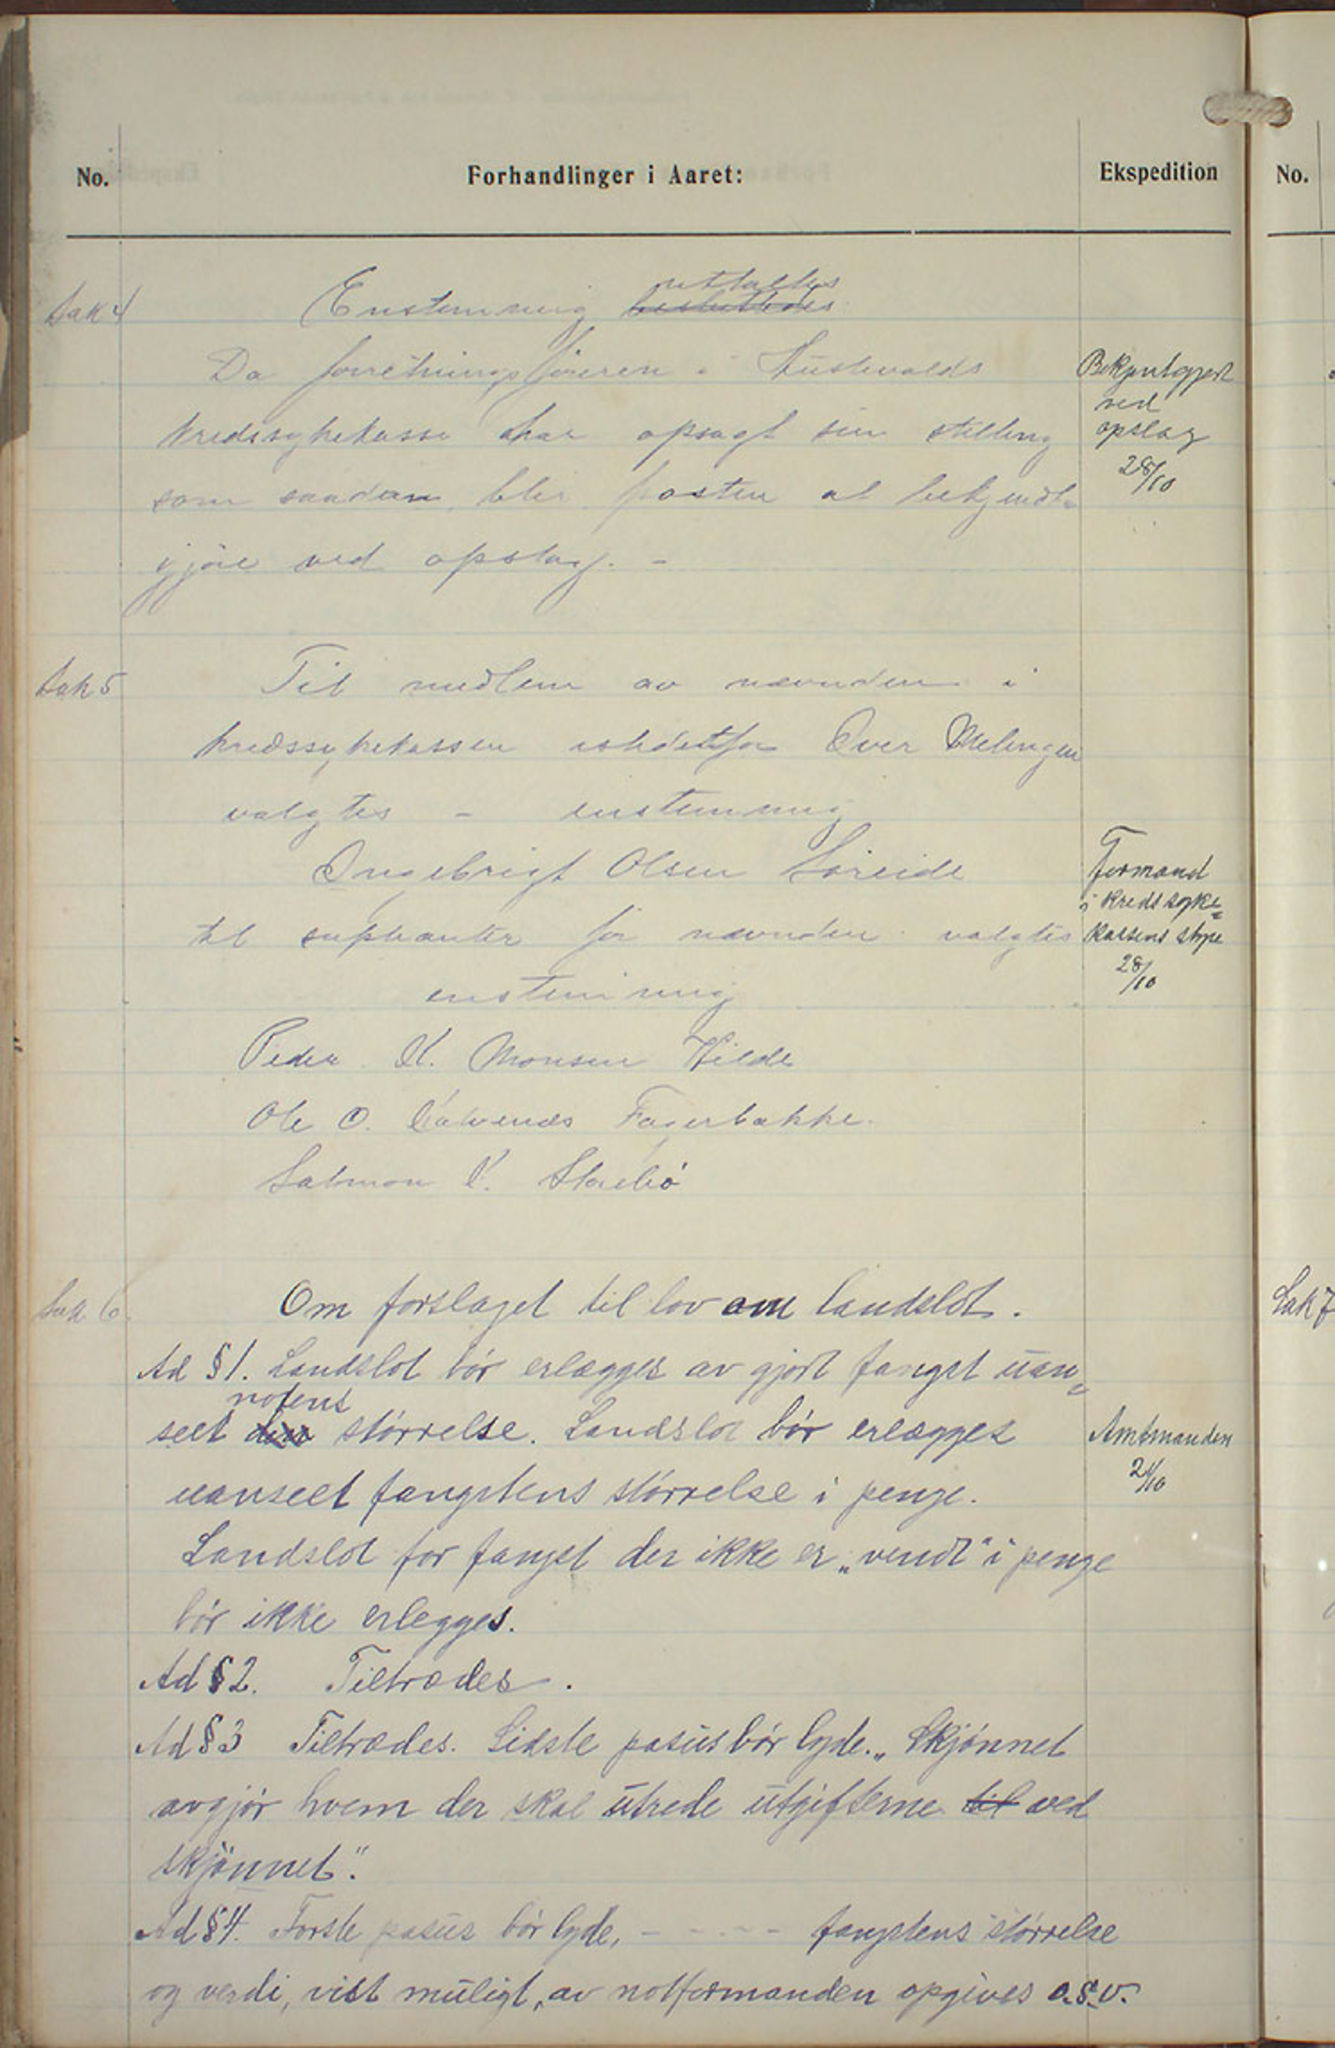 No.
Forhandlinger i Aaret:
Ekspedition
No.
Sak 4
Enstemmig besluttedes uttaltes
Da forretningsføreren i
kredssykekasse har opsagt sin stilling
som saadan, blir posten at bekjendt-
gjøre ved opslag. -
Bekjentgjort
ved
opslag
28/10
Sak 5
Til medlem av nævnden i
kredssykekassen istedetfor Iver Melingen
valgtes - enstemmig
Ingebrigt Olsen Søreide
til suplianter for nævnden valgtes
enstemmig
Peder K. Monsen Hilde
Ole O. Fagerbakke.
Salmon K. Storebø
Formand
i kredssyke=
kassens styre
28/10
Sak 6.
Om forslaget til lov om landslot.
Ad § 1. Landslot bør erlægges av gjort fangst uan=
seet den notens størrelse. Landslot bør erlægges
uanseet fangstens størrelse i penge.
Landslot for fangst der ikke er „vendt" i penge
bør ikke erlegges.
Ad § 2. Tiltrædes.
Ad § 3 Tiltrædes. Sidste pasus bør lyde. „Skjønnet
avgjør hvem der skal utrede utgifterne til ved
skjønnet".
Ad § 4. Første pasus bør lyde, - - - - - fangstens størrelse
og verdi, vist muligt, av notformanden opgives o.s.v.
Amtmanden
Sak 7